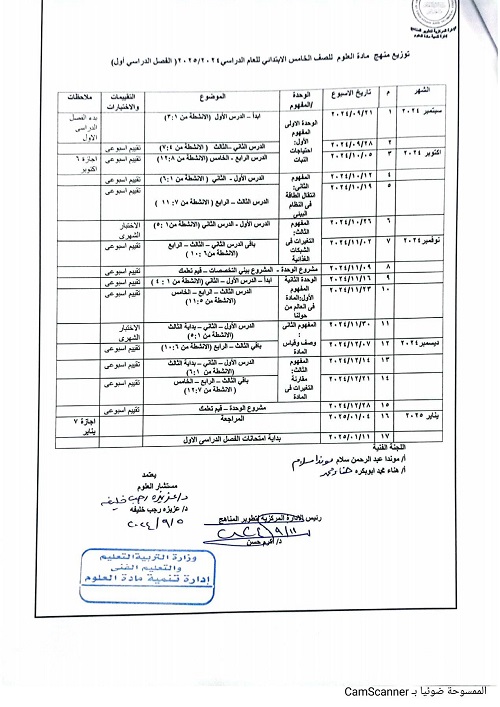 توزيع منهج مادة العلوم للصف الخامس الابتدائي للعام الدراسي ٢٠٢٥/٢٠٢٤ ( الفصل الدراسي أول)
الشهر م تاريخ الاسبوع الوحدة /المفهوم الموضوع التقييمات والاختبارات ملاحظات
سبتمبر ٢٠٢٤ ١ ٢٠٢٤/٠٩/٢١ الوحدة الاولى المفهوم الأول: احتياجات النبات ابدأ – الدرس الأول (الانشطة من ٣:١) بدء الفصل الدراسي الاول
٢ ٢٠٢٤/٠٩/٢٨ الدرس الثاني –الثالث ( الانشطة من ٧:٤) تقييم اسبوعى
أكتوبر ٢٠٢٤ ٣ ٢٠٢٤/١٠/٠٥ الدرس الرابع - الخامس (الانشطة من ١٢:٨) تقييم اسبوعى اجازة ٦ أكتوبر
٤ ٢٠٢٤/١٠/١٢ المفهوم الثاني: انتقال الطاقة في النظام البيئى الدرس الأول - الثاني ( الانشطة من ٦:١) تقييم اسبوعى
٥ ٢٠٢٤/١٠/١٩ الدرس الثالث – الرابع (الانشطة من ١١:٧) تقييم اسبوعى
٦ ٢٠٢٤/١٠/٢٦ المفهوم الثالث: التغيرات فى الشبكات الغذائية الدرس الأول - الدرس الثاني (الانشطة من٥:١) الاختبار الشهرى
نوفمبر ٢٠٢٤ ٧ ٢٠٢٤/١١/٠٢ باقي الدرس الثاني – الثالث – الرابع (الانشطة من ١٠:٦) تقييم اسبوعى
٨ ٢٠٢٤/١١/٠٩ مشروع الوحدة - المشروع بيني التخصصات – قيم تعلمك تقييم اسبوعى
٩ ٢٠٢٤/١١/١٦ الوحدة الثانية المفهوم الأول:المادة في العالم من حولنا ابدأ – الدرس الأول –الثاني (الانشطة من ١ : ٤) تقييم اسبوعى
١٠ ٢٠٢٤/١١/٢٣ الدرس الثالث – الرابع – الخامس (الانشطة من ١١:٥) تقييم اسبوعى
١١ ٢٠٢٤/١١/٣٠ المفهوم الثانى : وصف وقياس المادة الدرس الأول – الثاني – بداية الثالث (الانشطة من ٥:١) الاختبار الشهرى
ديسمبر ٢٠٢٤ ١٢ ٢٠٢٤/١٢/٠٧ باقي الثالث – الرابع (الانشطة من ١٠:٦) تقييم اسبوعى
١٣ ٢٠٢٤/١٢/١٤ المفهوم الثالث: مقارنة التغيرات فى المادة الدرس الأول – الثاني – بداية الثالث (الانشطة من ٦:١) تقييم اسبوعى
١٤ ٢٠٢٤/١٢/٢١ باقي الثالث – الرابع – الخامس (الانشطة من ١٢:٧) تقييم اسبوعى
١٥ ٢٠٢٤/١٢/٢٨ مشروع الوحدة – قيم تعلمك تقييم اسبوعى
يناير ٢٠٢٥ ١٦ ٢٠٢٥/٠١/٠٤ المراجعة اجازة ٧ يناير
١٧ ٢٠٢٥/٠١/١١ بداية امتحانات الفصل الدراسي الأول
اللجنة الفنية
أ/ موندا عبد الرحمن سلام موندا سلام
أ/ هناء محمد ابوبكره هناء محمد
يعتمد
مستشار العلوم
د/ عزيزه رجب خليفه
د/ عزيزه رجب خليفه
٢٠٢٤/٩/٥
رئيس الإدارة المركزية لتطوير المناهج
٢٠٢٤/٩/١١
د/ أكرم حسن
وزارة التربية التعليم
والتعليم الفنى
إدارة تنمية مادة العلوم
الممسوحة ضوئيا بـ CamScanner